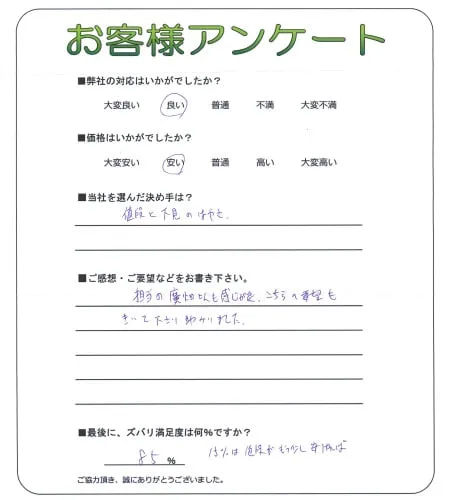 お客様アンケート
■弊社の対応はいかがでしたか?
大変良い 良い 普通 不満 大変不満
■価格はいかがでしたか?
大変安い 安い 普通 高い 大変高い
■当社を選んだ決め手は?
値段と下見のはやさ。
■ご感想・ご要望などをお書き下さい。
担当の廣畑さんも感じが良く、こちらの希望も
きいて下さり助かりました。
■最後に、ズバリ満足度は何%ですか?
85 % 15%は値段がもう少し安ければ
ご協力頂き、誠にありがとうございました。